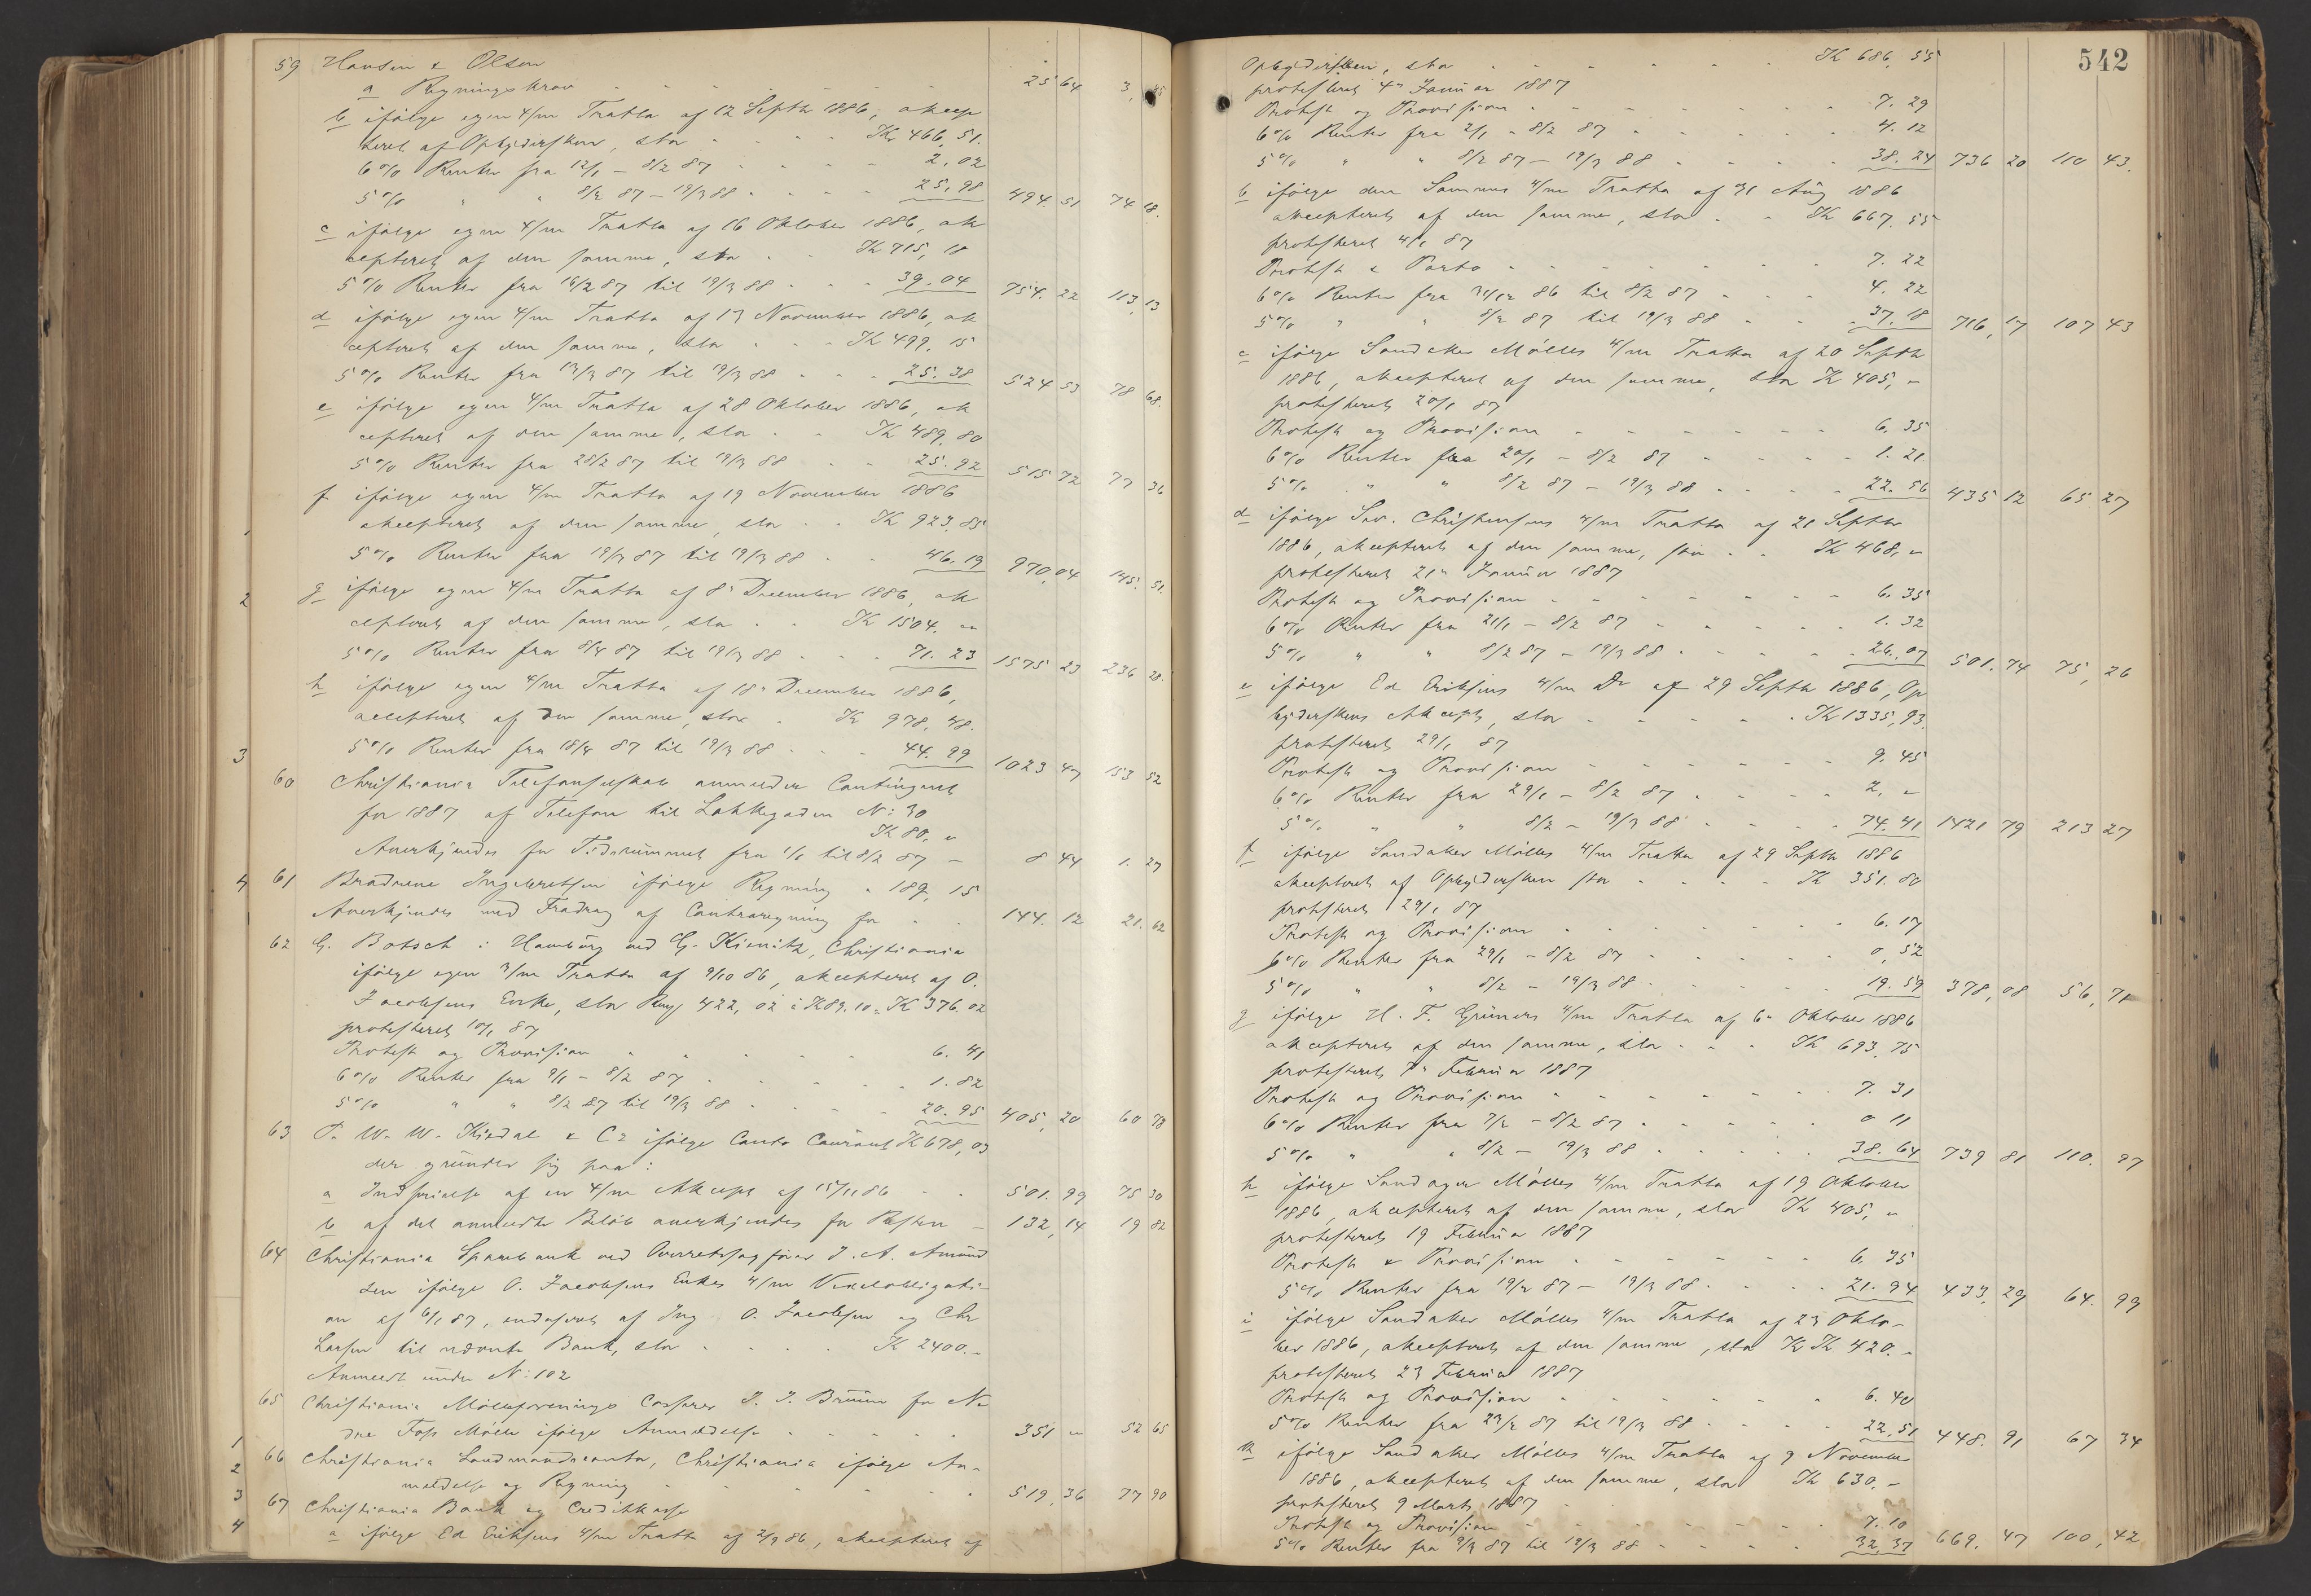 59 Hansen & Olsen
a Regningskrav 25 64 3,
b ifølge egen 4/m Tratta af 12 Septbr 1886, akcep
teret af Opbydersken, stor Kr 466,51.
6% Renter fra 12/1 - 8/2 87 2,02
5% " " 8/2 87 - 19/3 88 25,98 494.51 74 18.
c ifølge egen 4/m Tratta af 16 Oktober 1886, ak
cepteret af den samme, stor Kr 715,18
5% Renter fra 16/2 87 til 19/3 88 39.04 754.22 113,13
d ifølge egen 4/m Tratta af 13 November 1886, ak
cepteret af den samme, stor Kr 499,15
5% Renter fra 13/3 87 til 19/3 88 25.38 524 53 78 68.
e ifølge egen 4/m Tratta af 28 Oktober 1886, ak
cepteret af den samme, stor Kr 489.80
5% Renter fra 28/2 87 til 19/3 88 25.92 515 72 77 36
f ifølge egen 4/m Tratta af 19 November 1886
akcepteret af den samme, stor Kr 923.85
1
5% Renter fra 19/3 87 til 19/3 88 46.19 970,04 145.51.
2 g ifølge egen 4/m Tratta af 8' December 1886, ak
cepteret af den samme, stor Kr 1504. "
5% Renter fra 8/4 87 til 19/3 88 71.23 1575 23 236 28.
h ifølge egen 4/m Tratta af 18" December 1886,
accepteret af den samme, stor Kr 978,48.
3 5% Renter fra 18/4 87 til 19/3 88 44.99 1023 47 153 52
60 Christiania Telefonselskab anmelder Contingent
for 1887 af Telefon til Lakkegaden No: 30
Kr 80, "
Anerkjendes for Tidsrummet fra 1/1 til 8/2 87 - 8 44 1.27
4 61 Brødrene Ingebretsen ifølge Regning " 189,15
Anerkjendes med Fradrag af Contraregning for 144.12 21.62
62 G. Botsch i Hamburg ved G. Kienitz, Christiania
ifølge egen 3/m Tratta af 9/10 86, akcepteret af O.
Jacobsens Enke, stor Rmf 422,02 à Kr 89.10 = Kr 376.02
protesteret 10/1 87
Protest og Provision 6.41
6% Renter fra 9/1 - 8/2 87 1.82
5% " " 8/2 87 til 19/3 88 20.95 405,20 60 78
63 P. W. W. Kildal & Co ifølge Conto Courant Kr 678,03
der grunder sig paa:
a Indfrielse af en 4/m Akcept af 15/11 86 501.99 75 30
b af det anmeldte Beløb anerkjendes for Resten - 132,14 19 82
64 Christiania Sparebank ved Overretssagfører J. A. Amund
sen ifølge O. Jacobsens Enkes 4/m Vexelobligati-
on af 6/1 87, endosseret af Ing. O. Jacobsen og Chr
Larsen til nævnte Bank, stor Kr 2400. -
Anmeldt under No: 102
65 Christiania Mølleforenings Casserer J. J. Bruun for Ne
1 dre Foss Mølle ifølge Anmeldelse 351 " 52 65
2 66 Christiania Landmandscontor, Christiania ifølge An-
3 meldelse og Regning 519,36 77 90
67 Christiania Bank og Creditkasse
4 a ifølge Ed Eriksens 4/m Tratta af 2/9 86, akcepteret af
542
Opbydersken, stor Kr 686,55
protesteret 4" Januar 1887
Protest og Provision 7.29
6% Renter fra 2/1 - 8/2 87 4.12
5% " " 8/2 87 - 19/3 88 38.24 736 20 110 43.
b ifølge den Sammes 4/m Tratta af 31 Aug 1886
akcepteret af den samme, stor Kr 667.55
protesteret 4/1 87
Protest & Porto 7.22
6% Renter fra 31/12 86 til 8/2 87 4.22
5% " " 8/2 87 til 19/3 88 37.18 716,17 107 43
c ifølge Sandaker Mølles 4/m Tratta af 20 Septbr
1886, akcepteret af den samme, stor Kr 405, "
protesteret 20/1 87
Protest og Provision 6.35
6% Renter fra 20/1 - 8/2 87 1.21
5% " " 8/2 87 - 19/3 88 22.56 435 12 65 27
d ifølge Sev. Christensens 4/m Tratta af 21 Septbr
1886, akcepteret af den samme, stor Kr 468, "
protesteret 21" Januar 1887
Protest og Provision 6.35
6% Renter fra 21/1 - 8/2 87 1.32
5% " " 8/2 87 - 19/3 88 26.07 501.74 75,26
e ifølge Ed Eriksens 4/m Dr af 29 Septbr 1886, Op
byderskens Akcept, stor Kr 1335,93.
protesteret 29/1 87
Protest og Provision 9.45
6% Renter fra 29/1 - 8/2 87 2, "
5% " " 8/2 - 19/3 88 74.41 1421 79 213 27
f ifølge Sandaker Mølles 4/m Tratta af 29 Septbr 1886
akcepteret af Opbydersken stor Kr 351.80
protesteret 29/1 87
Protest og Provision 6.17
6% Renter fra 29/1 - 8/2 87 0,52
5% " " 8/2 - 19/3 88 19.59 378,08 56,71
g ifølge H. F. Grüners 4/m Tratta af 6" Oktober 1886
akcepteret af den samme, stor Kr 693.75
protesteret 7" Februar 1887
Protest og Provision 7.31
6% Renter fra 7/2 - 8/2 87 0 11
5% " " 8/2 - 19/3 88 38.64 739 81 110.97
h ifølge Sandager Mølles 4/m Tratta af 19 Oktober
1886, akcepteret af den samme, stor Kr 405, "
protesteret 19 Februar 1887
Protest & Provision 6.35
5% Renter fra 19/2 87 - 19/3 88 21.94 433.29 64.99
i ifølge Sandaker Mølles 4/m Tratta af 23 Okto-
ber 1886, akcepteret af den samme, stor Kr Kr 420. -
protesteret 23 Februar 1887
Protest og Provision 6.40
5% Renter fra 23/2 87 til 19/3 88 22,51 448.91 67 34
k ifølge Sandaker Mølles 4/m Tratta af 9 November
1886, akcepteret af den samme, stor Kr 630. -
protesteret 9 Marts 1887
Protest og Provision 7.10
5% Renter fra 9/3 87 til 19/3 88 32.37 669.47 100,42